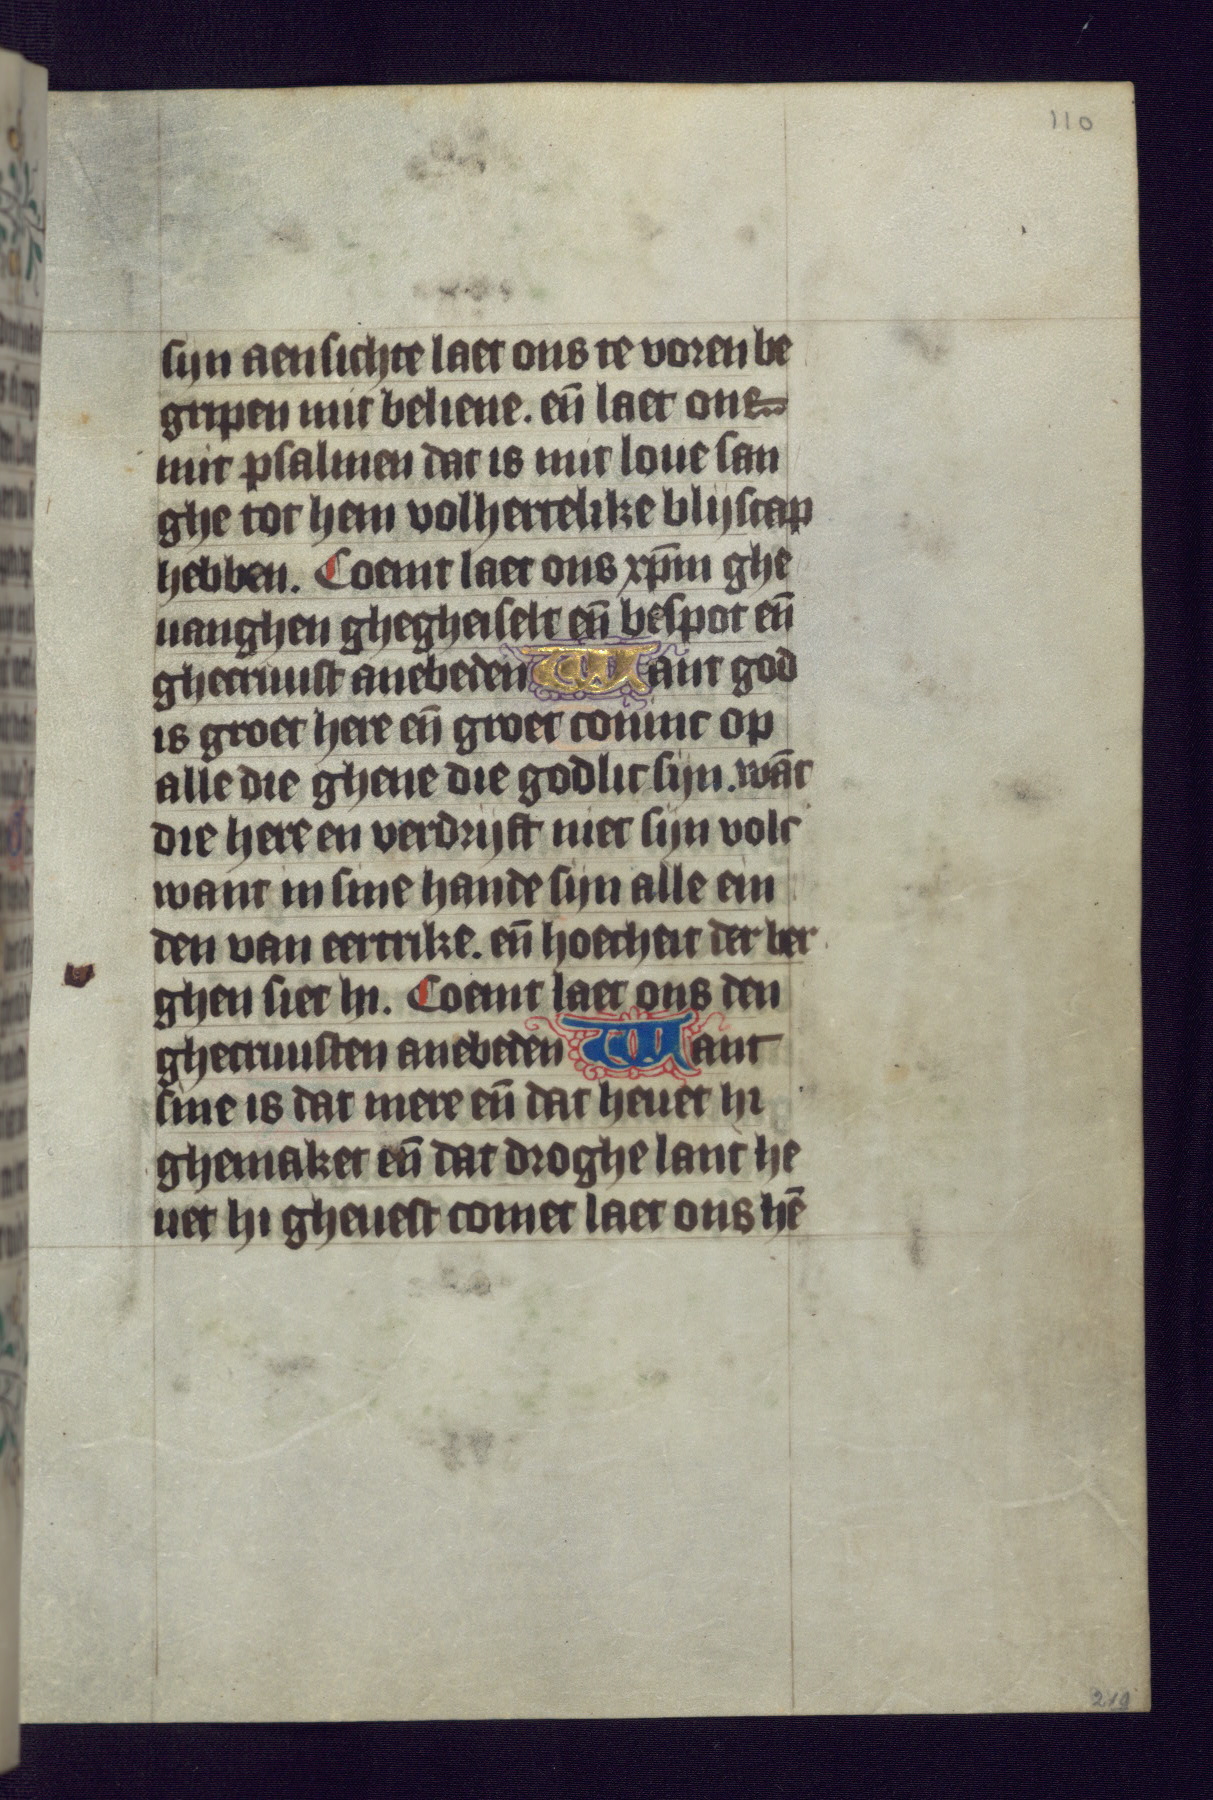 110
sijn aensichte laet ons te voren be
gripen mit beliene. eñ laet ons
mit psalmen dat is mit loue san
ghe tot hem volhertelike blijscap
hebben. Coemt laet ons xp̄m ghe
uanghen ghegheiselt eñ bespot eñ
ghecruust anebeden Want god
is groet here eñ groet coninc op
alle die ghene die godlic sijn. wāt
die here en verdrijft niet sijn volc
want in sine hande sijn alle ein
den van eertrike. eñ hoecheit der ber
ghen siet hi. Coemt laet ons den
ghecruusten anebeden Want
sine is dat mere eñ dat heuet hi
ghemaket eñ dat droghe lant he
uet hi gheuest comet laet ons hē
219